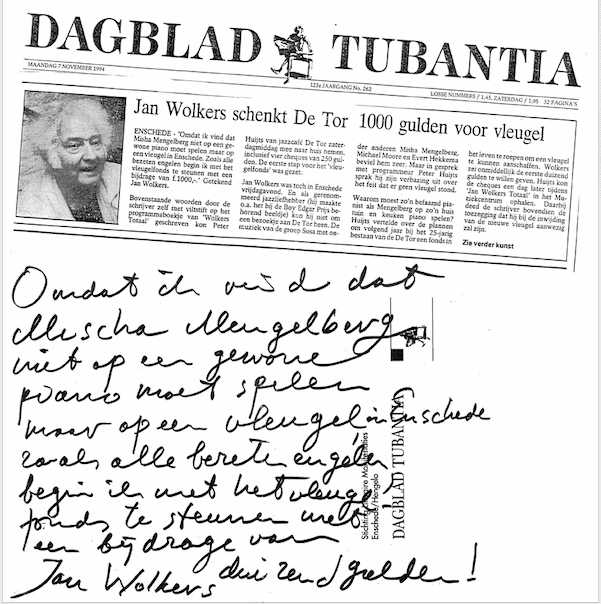 DAGBLAD TUBANTIA
MAANDAG 7 NOVEMBER 1994
123e JAARGANG No. 262
LOSSE NUMMERS / 1,45, ZATERDAG / 1,95 32 PAGINA'S
Jan Wolkers schenkt De Tor 1000 gulden voor vleugel
ENSCHEDE - 'Omdat ik vind dat
Misha Mengelberg niet op een ge-
wone piano moet spelen maar op
een vleugel in Enschede. Zoals alle
bezeten engelen begin ik met het
vleugelfonds te steunen met een
bijdrage van f.1000,-.' Getekend
Jan Wolkers.
Bovenstaande woorden door de
schrijver zelf met viltstift op het
programmaboekje van 'Wolkers
Totaal' geschreven kon Peter
Huijts van jazzcafé De Tor zater-
dagmiddag mee naar huis nemen,
inclusief vier cheques van 250 gul-
den. De eerste stap voor het 'vleu-
gelfonds' was gezet.
Jan Wolkers was toch in Enschede
vrijdagavond. En als gerenom-
meerd jazzliefhebber (hij maakte
o.a. het bij de Boy Edgar Prijs be-
horend beeldje) kon hij niet om
een bezoekje aan De Tor heen. De
muziek van de groep Sosa met on-
der anderen Misha Mengelberg,
Michael Moore en Evert Hekkema
beviel hem zeer. Maar in gesprek
met programmeur Peter Huijts
sprak hij zijn verbazing uit over
het feit dat er geen vleugel stond.
Waarom moest zo'n befaamd pia-
nist als Mengelberg op zo'n huis
tuin en keuken piano spelen?
Huijts vertelde over de plannen
om volgend jaar bij het 25-jarig
bestaan van de De Tor een fonds in
het leven te roepen om een vleugel
te kunnen aanschaffen. Wolkers
zei onmiddellijk de eerste duizend
gulden te willen geven. Huijts kon
de cheques een dag later tijdens
'Jan Wolkers Totaal' in het Mu-
ziekcentrum ophalen. Daarbij
deed de schrijver bovendien de
toezegging dat hij bij de inwijding
van de nieuwe vleugel aanwezig
zal zijn.
Zie verder kunst
Omdat ik vind dat
Mischa Mengelberg
niet op een gewone
piano moet spelen
maar op een vleugel in Enschede
zoals alle bezeten engelen
begin ik met het vleugel
fonds te steunen met
een bijdrage van
duizend gulden!
Jan Wolkers
Enschede/Hengelo
DAGBLAD TUBANTIA